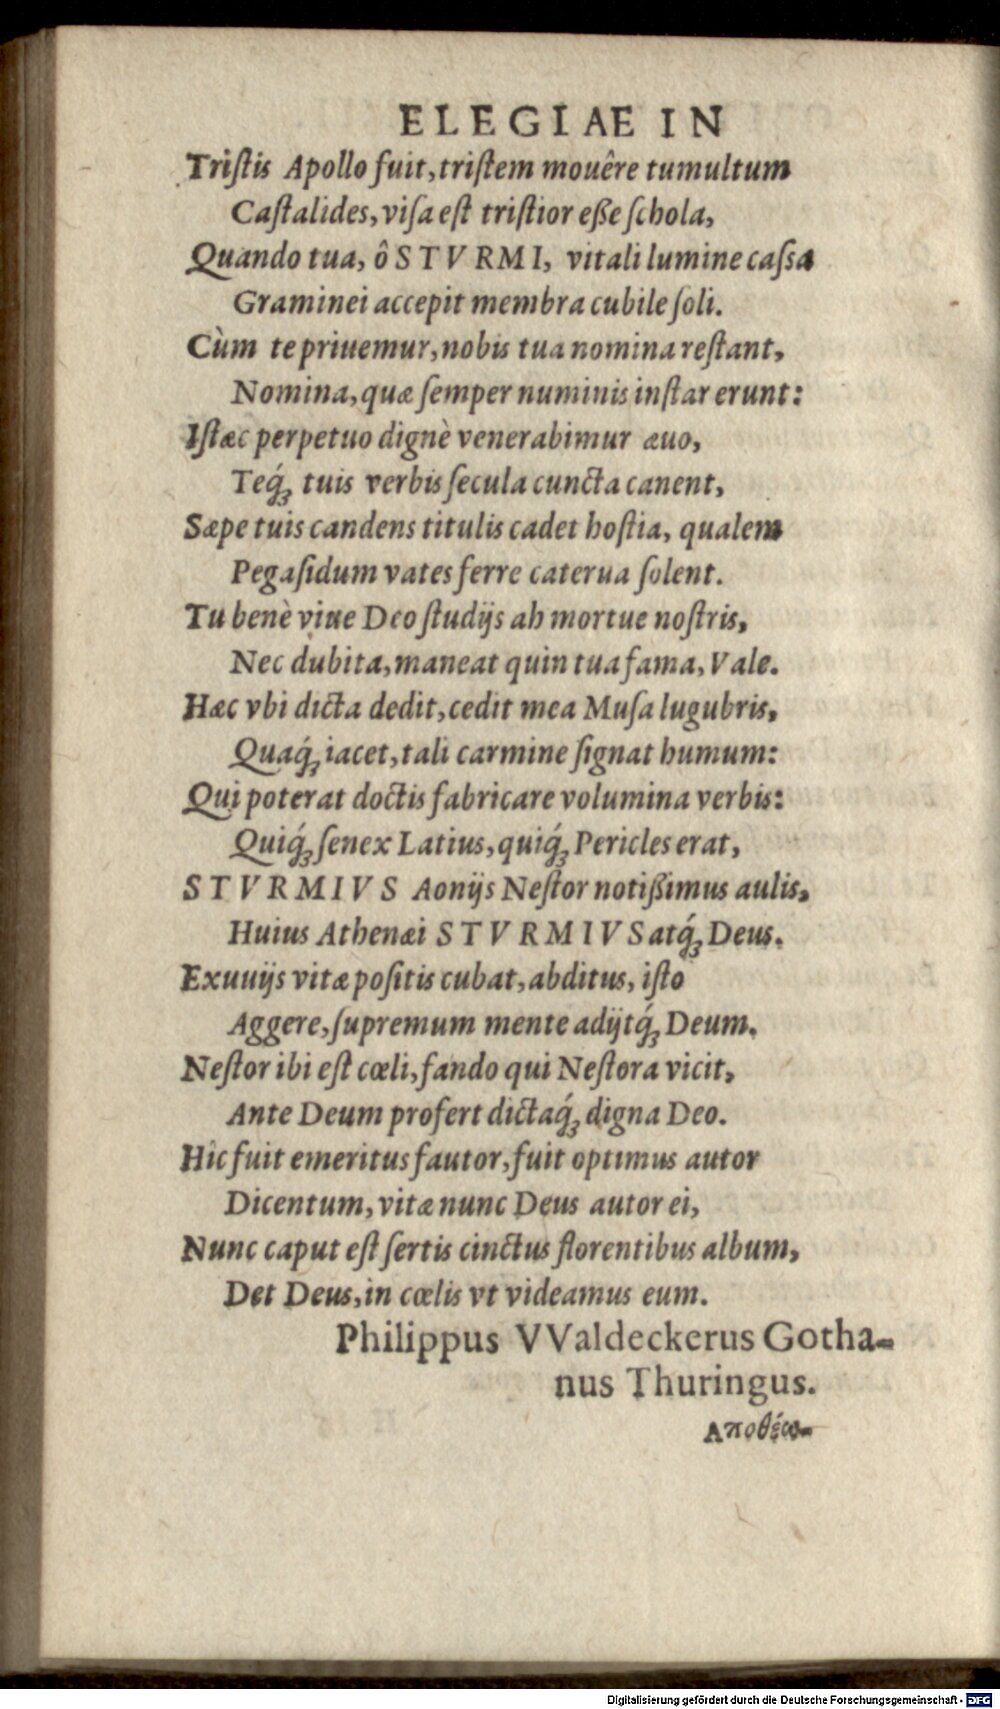 ELEGIAE IN
Triſtis Apollo fuit, triſtem mouêre tumultum
Caſtalides, viſa est triſtior eße ſchola,
Quando tua, ô STVRMI, vitali lumine caſsa
Graminei accepit membra cubile ſoli.
Cùm te priuemur, nobis tua nomina reſtant,
Nomina, quæ ſemper numinis inſtar erunt:
Iſtæc perpetuo dignè venerabimur æuo,
Teq́ꝫ tuis verbis ſecula cuncta canent,
Sæpe tuis candens titulis cadet hoſtia, qualem
Pegaſidum vates ferre caterua ſolent.
Tu benè viue Deo ſtudijs ah mortue noſtris,
Nec dubita, maneat quin tua fama, Vale.
Hæc vbi dicta dedit, cedit mea Muſa lugubris,
Quaq́ꝫ iacet, tali carmine ſignat humum:
Qui poterat doctis fabricare volumina verbis:
Quiq́ꝫ ſenex Latius, quiq́ꝫ Pericles erat,
STVRMIVS Aonijs Neſtor notißimus aulis,
Huius Athenæi STVRMIVS atq́ꝫ Deus.
Exuuijs vitæ poſitis cubat, abditus, iſto
Aggere, ſupremum mente adijtq́ꝫ Deum.
Neſtor ibi eſt cœli, fando qui Neſtora vicit,
Ante Deum profert dictaq́ꝫ digna Deo.
Hic fuit emeritus fautor, fuit optimus autor
Dicentum, vitæ nunc Deus autor ei,
Nunc caput eſt ſertis cinctus florentibus album,
Det Deus, in cœlis vt videamus eum.
Philippus VValdeckerus Gotha-
nus Thuringus.
Αποθέω-
Digitalisierung gefördert durch die Deutsche Forschungsgemeinschaft - DFG